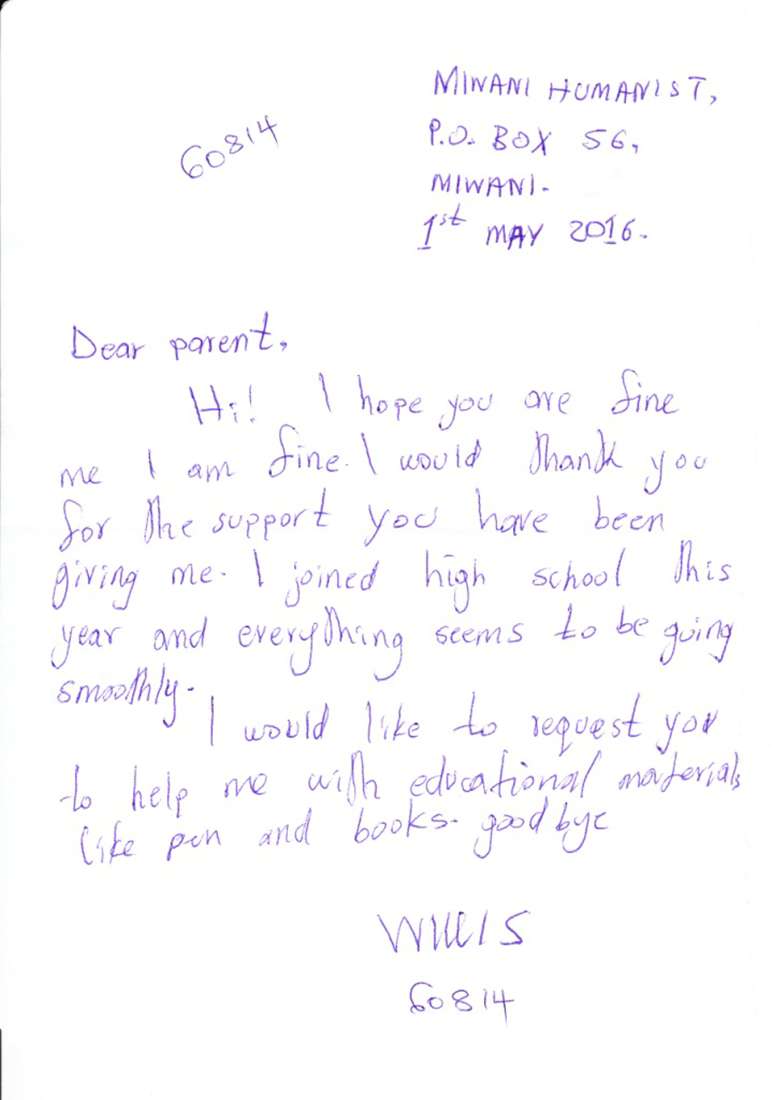 MIWANI HUMANIST,
60814
P.O. BOX 56,
MIWANI.
1st MAY 2016.
Dear parent,
Hi! I hope you are fine
me I am fine. I would thank you
for the support you have been
giving me. I joined high school this
year and everything seems to be going
smoothly.
I would like to request you
to help me with educational materials
like pen and books. goodbye
WILLIS
60814